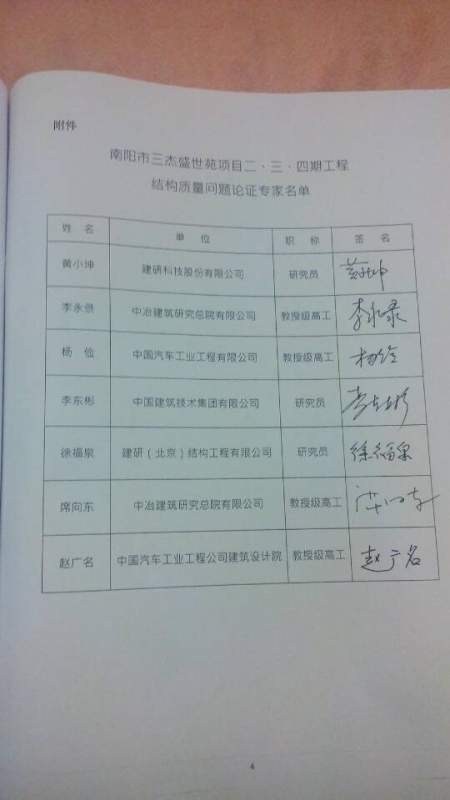 附件
南阳市三杰盛世苑项目二·三·四期工程
结构质量问题论证专家名单
姓 名 单 位 职 称 签 名
黄小坤 建研科技股份有限公司 研究员 黄小坤
李永录 中冶建筑研究总院有限公司 教授级高工 李永录
杨 俭 中国汽车工业工程有限公司 教授级高工
李东彬 中国建筑技术集团有限公司 研究员 李东彬
徐福泉 建研（北京）结构工程有限公司 研究员 徐福泉
席向东 中冶建筑研究总院有限公司 教授级高工
赵广名 中国汽车工业工程公司建筑设计院 教授级高工 赵广名
4